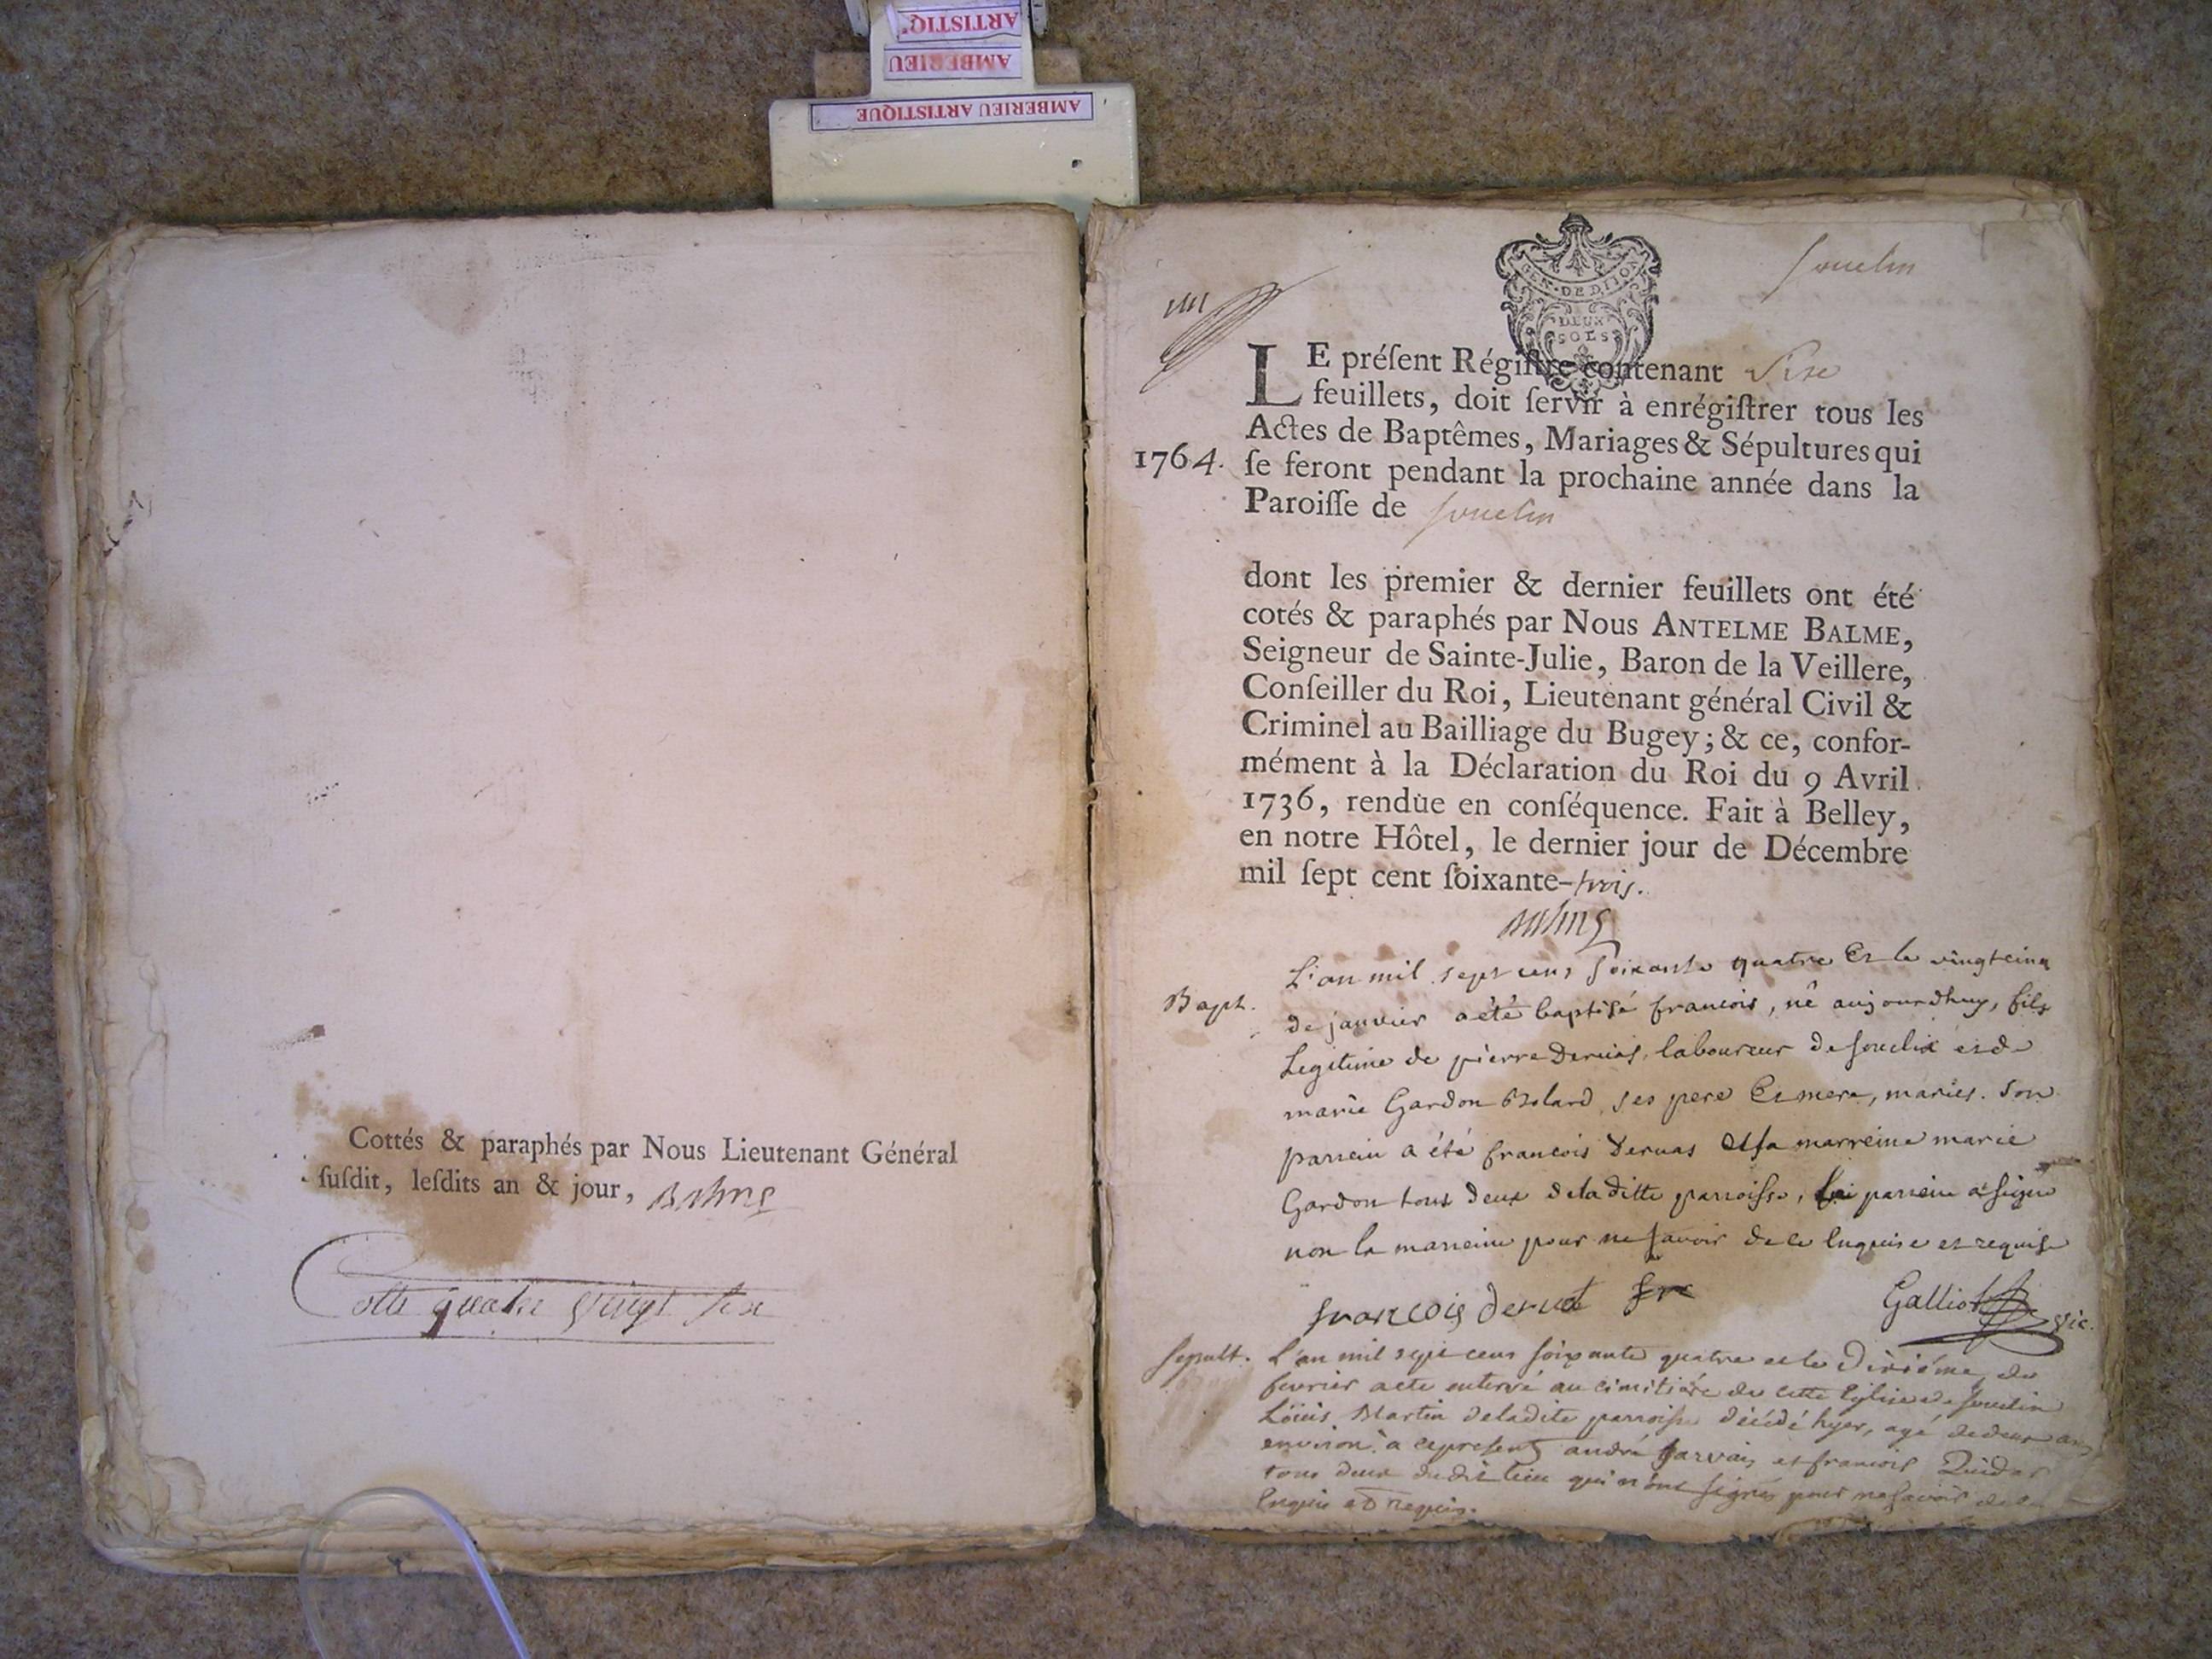 ARTISTIQ'
AMBERIEU
AMBERIEU ARTISTIQUE
Cottés & paraphés par Nous Lieutenant Général
ſuſdit, leſdits an & jour, Balme
Cotte quatre vingt six
Souclin
GEN. DE DIJON
DEUX
SOLS
LE préſent Régiſtre contenant Sixe
feuillets, doit ſervir à enrégiſtrer tous les
Actes de Baptêmes, Mariages & Sépultures qui
1764. ſe feront pendant la prochaine année dans la
Paroiſſe de Souclin
dont les premier & dernier feuillets ont été
cotés & paraphés par Nous ANTELME BALME,
Seigneur de Sainte-Julie, Baron de la Veillere,
Conſeiller du Roi, Lieutenant général Civil &
Criminel au Bailliage du Bugey; & ce, confor-
mément à la Déclaration du Roi du 9 Avril
1736, rendüe en conſéquence. Fait à Belley,
en notre Hôtel, le dernier jour de Décembre
mil ſept cent ſoixante-trois.
Balme
L'an mil sept cens soixante quatre et le vingtcinq
Bapt. de janvier a été baptisé francois, né aujourdhuy, fils
Legitime de pierre laboureur de souclin et de
marie Gardon ses pere et mere, mariés. Son
parrein a été francois et sa marreine marie
Gardon tous deux de la ditte parroisse, le parrein a signé
non la marreine pour ne savoir de ce enquise et requise
francois
Galliot vic.
Sepult. L'an mil sept cens soixante quatre et le dixiéme de
fevrier a ete enterré au cimitiére de cette Eglise de Souclin
Loüis Martin de la dite parroisse décédé hyer, agé de deux ans
environ. a ce presents andré et francois
tous deux dudit lieu qui n'ont signés pour ne savoir de
enquis et requis.